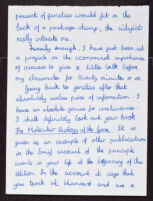 percent of genetics would fit on the
back of a postage stamp, the subject
really interests me.
Funnily enough, I have just set
a project on the economical importance
of viruses to give a little talk before
my classmates for twenty minutes or so.
Going back to genetics after that
absolutely useless piece of information. I
have an absolute genius for irrelevancies.
I shall definitely look out your book
The Molecular Biology of the Gene. It is
given as an example of other publication
in the brief account of the principle
events in your life at the beginning of the
edition. In the account it says that
you teach at Harvard and are a